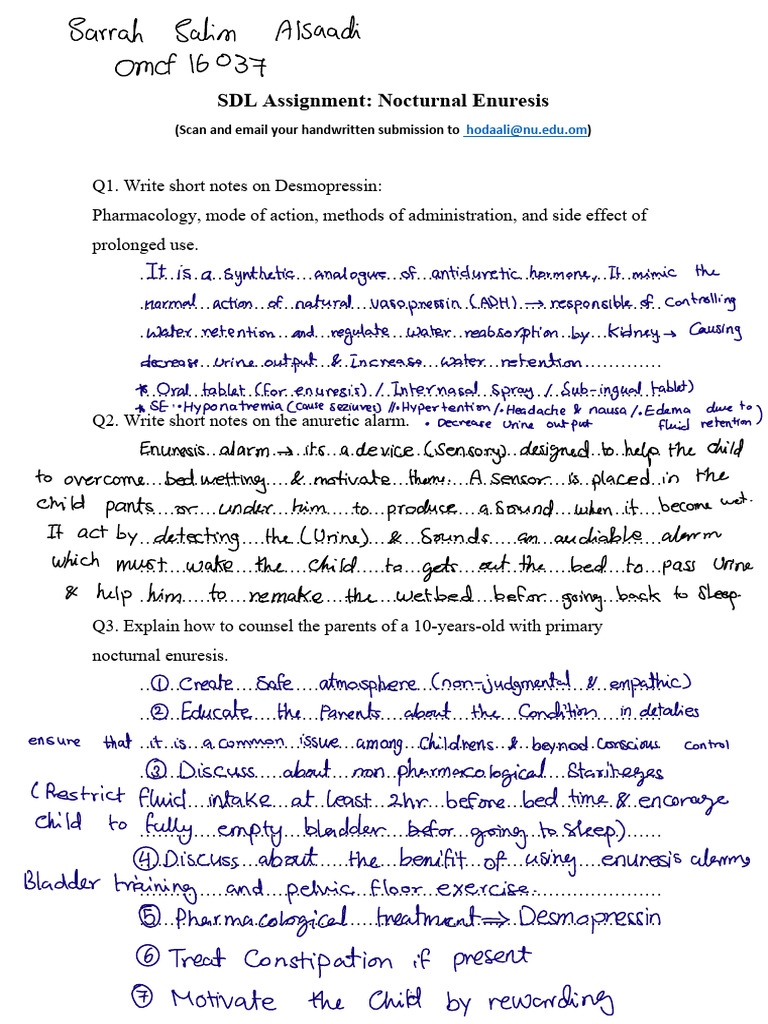 Sarrah Salim Alsaadi
omcf 16037
SDL Assignment: Nocturnal Enuresis
(Scan and email your handwritten submission to hodaali@nu.edu.om)
Q1. Write short notes on Desmopressin:
Pharmacology, mode of action, methods of administration, and side effect of
prolonged use.
It is a synthetic analogue of antiduretic hormone, It mimic the
normal action of natural vasopressin (ADH) → responsible of controlling
water retention and regulate water reabsorption by kidney → Causing
decrease urine output & Increase water retention
* Oral tablet (for enuresis) / Internasal Spray / Sub-ingual tablet)
* SE • Hyponatremia (cause seziures) /• Hypertention /• Headache & nausa /• Edema due to fluid retention)
Q2. Write short notes on the anuretic alarm. • Decrease urine output
Enuresis alarm → its a device (Sensory) designed to help the child
to overcome bed wetting & motivate them. A sensor is placed in the
child pants or under him to produce a sound when it become wet.
It act by detecting the (Urine) & Sounds an audiable alarm
which must wake the child to gets out the bed to pass urine
& help him to remake the wetbed befor going back to sleep.
Q3. Explain how to counsel the parents of a 10-years-old with primary
nocturnal enuresis.
① Create safe atmosphere (non-judgmental & empathic)
② Educate the Parents about the Condition in detalies
ensure that it is a common issue among childrens & beynod conscious control
③ Discuss about non pharmacological Stariteges
(Restrict fluid intake at least 2hr before bed time & encorage
child to fully empty bladder befor going to sleep)
④ Discuss about the benifit of using enuresis alarms
Bladder training and pelvic floor exercise.
⑤ Pharmacological treatment ⇒ Desmopressin
⑥ Treat Constipation if present
⑦ Motivate the Child by rewarding